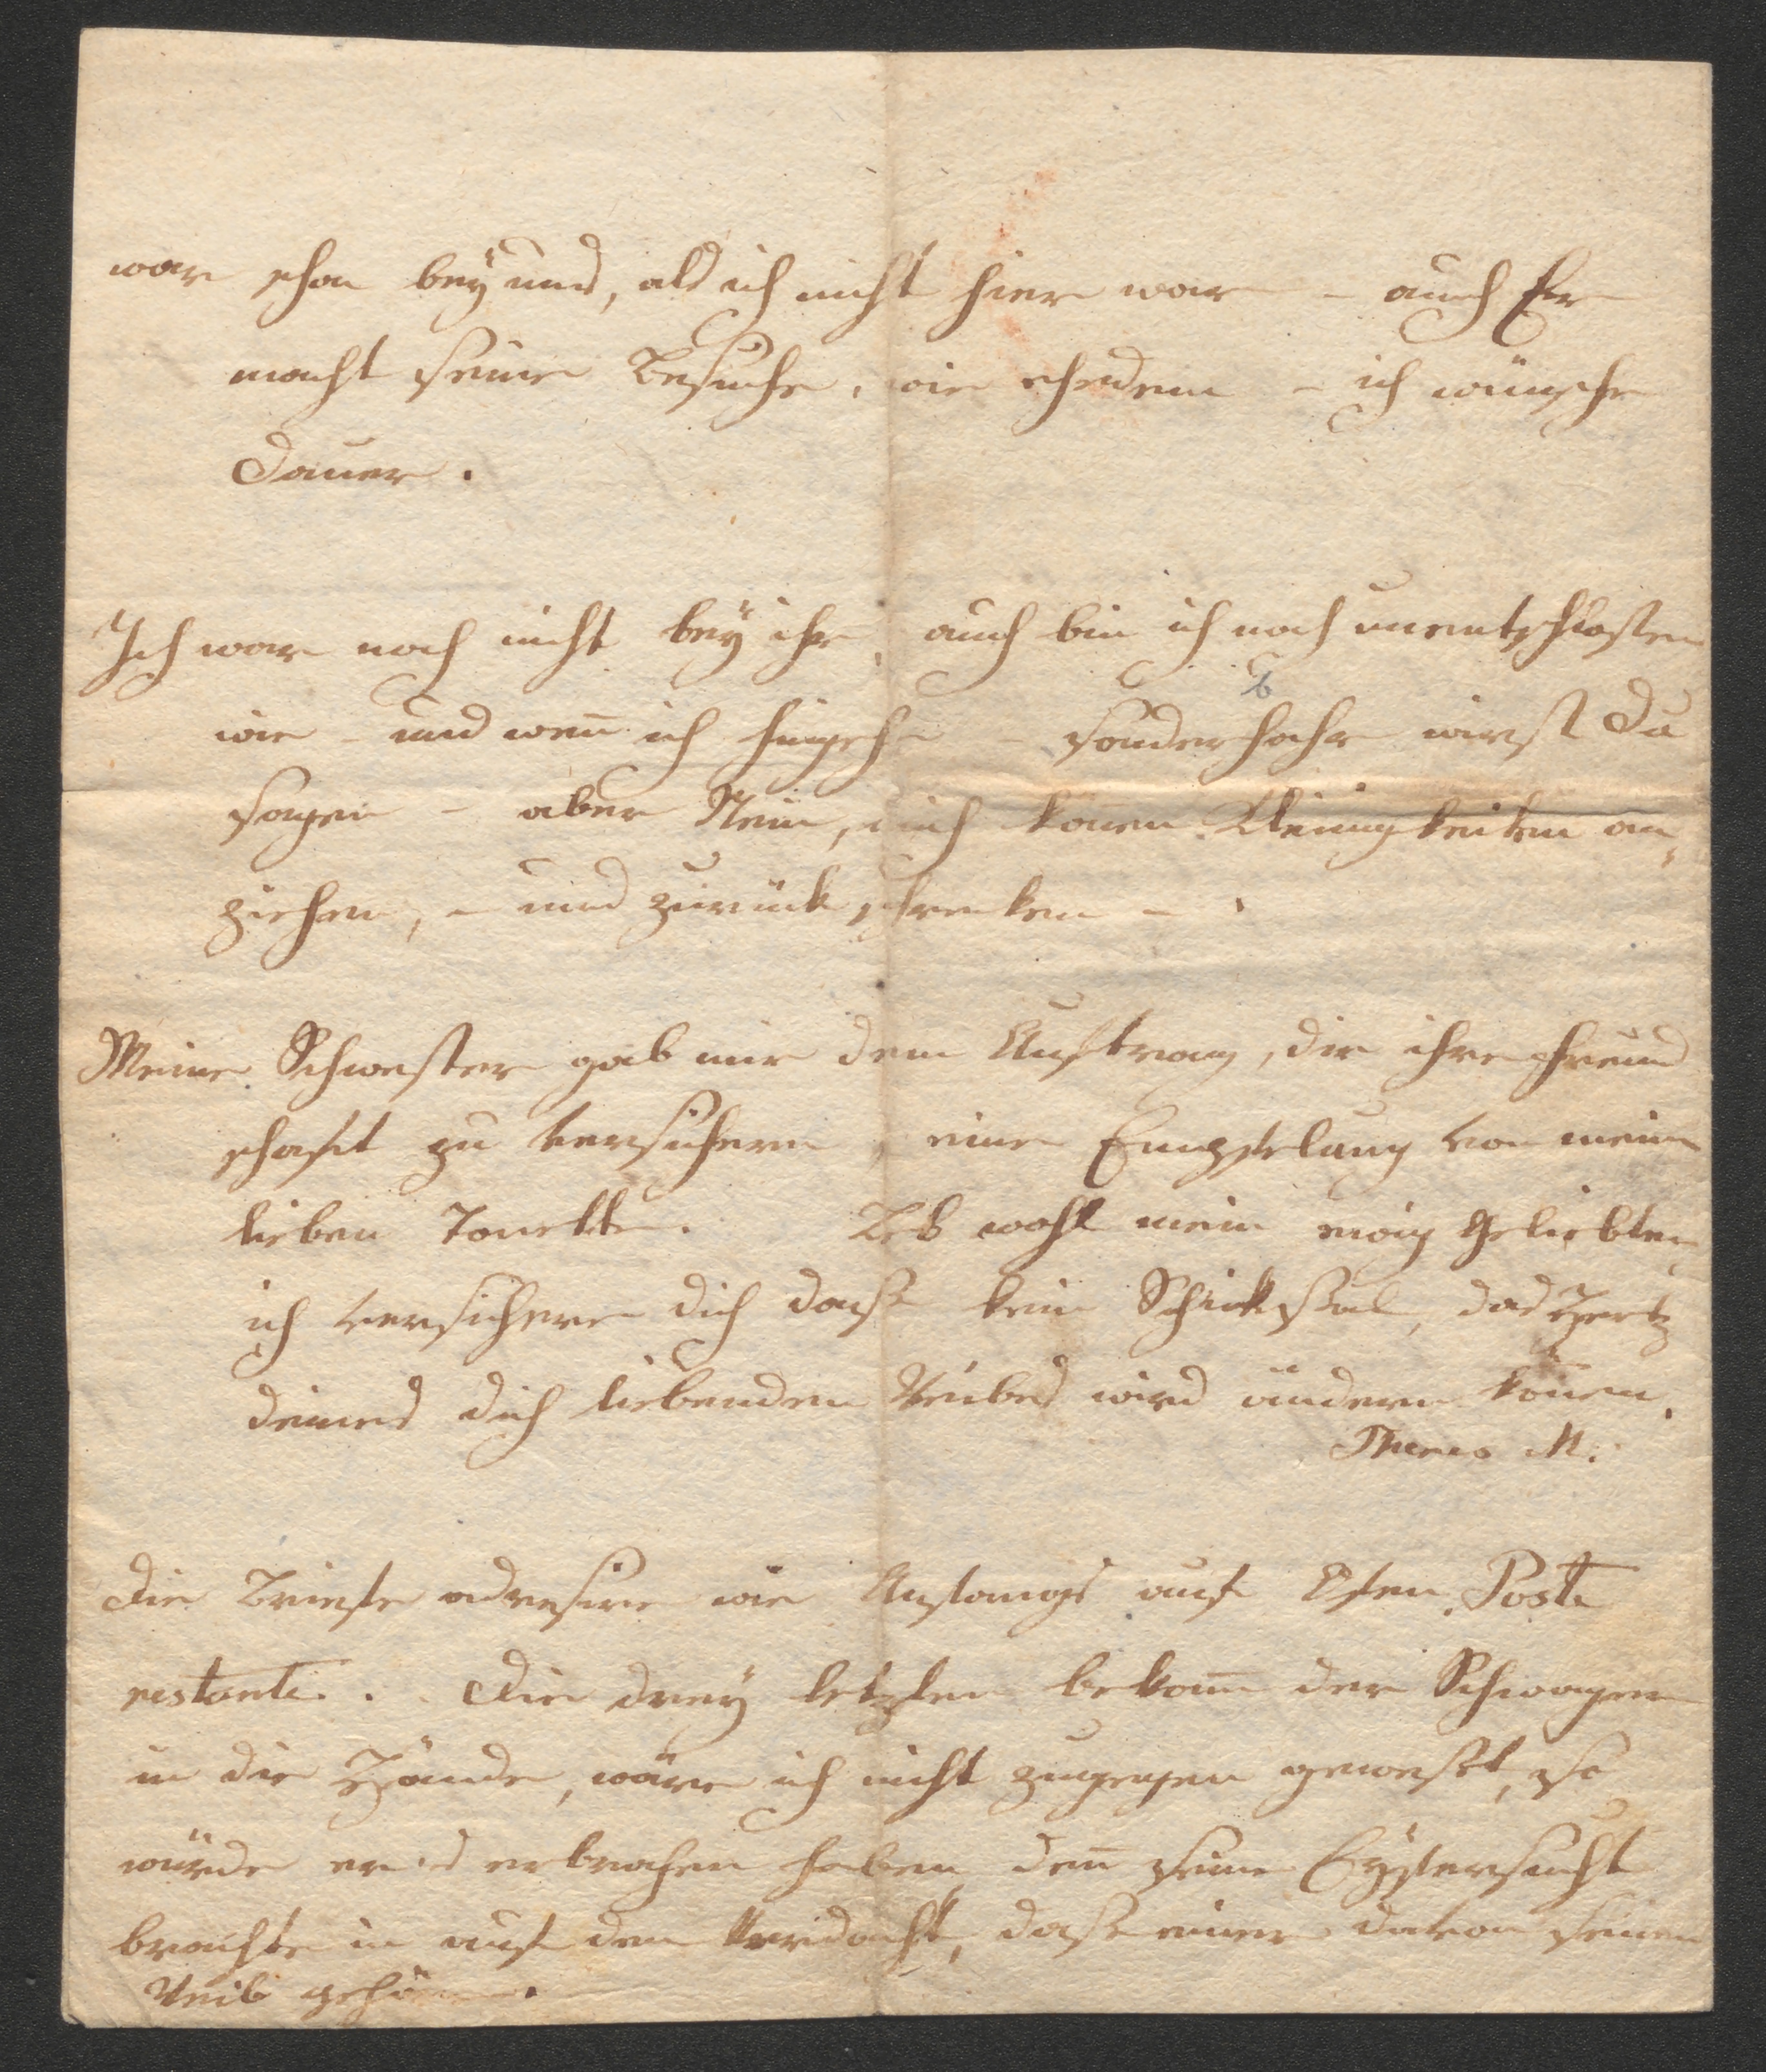 war schon bey uns, als ich nicht hier war – auch Er
macht seine Besuche, wie ehedem – ich wünsche
Dauer.
Ich war noch nicht bey ihr, auch bin ich noch unentschlossen
wie – und wen̄ ich hingehe sonderbahr wirst Du
sagen – aber Nein, mich könen Kleinigkeiten an,
ziehen, – und zurück schreken –
Meine Schwester gab mir dem Auftrag, dir ihre Freund
schaft zu versichern, eine Empfelung von meine
lieben Tonette. Leb wohl mein ewig Geliebter,
ich versichere dich dass kein Schiksal, das Hertz
deines dich liebenden Weibes wird ändern kön̄en.
Theres M.
Die Briefe adresire wie Anfangs auf Ofen Poste
restante. Die drey letzten bekam̄ der Schwager
in die Hände, wäre ich nicht zugegen gewest, so
würde er es erbrochen haben den̄ seine Eyfersucht
brachte in auf den Verdacht, dass einer davon seinen
Weib gehöre.